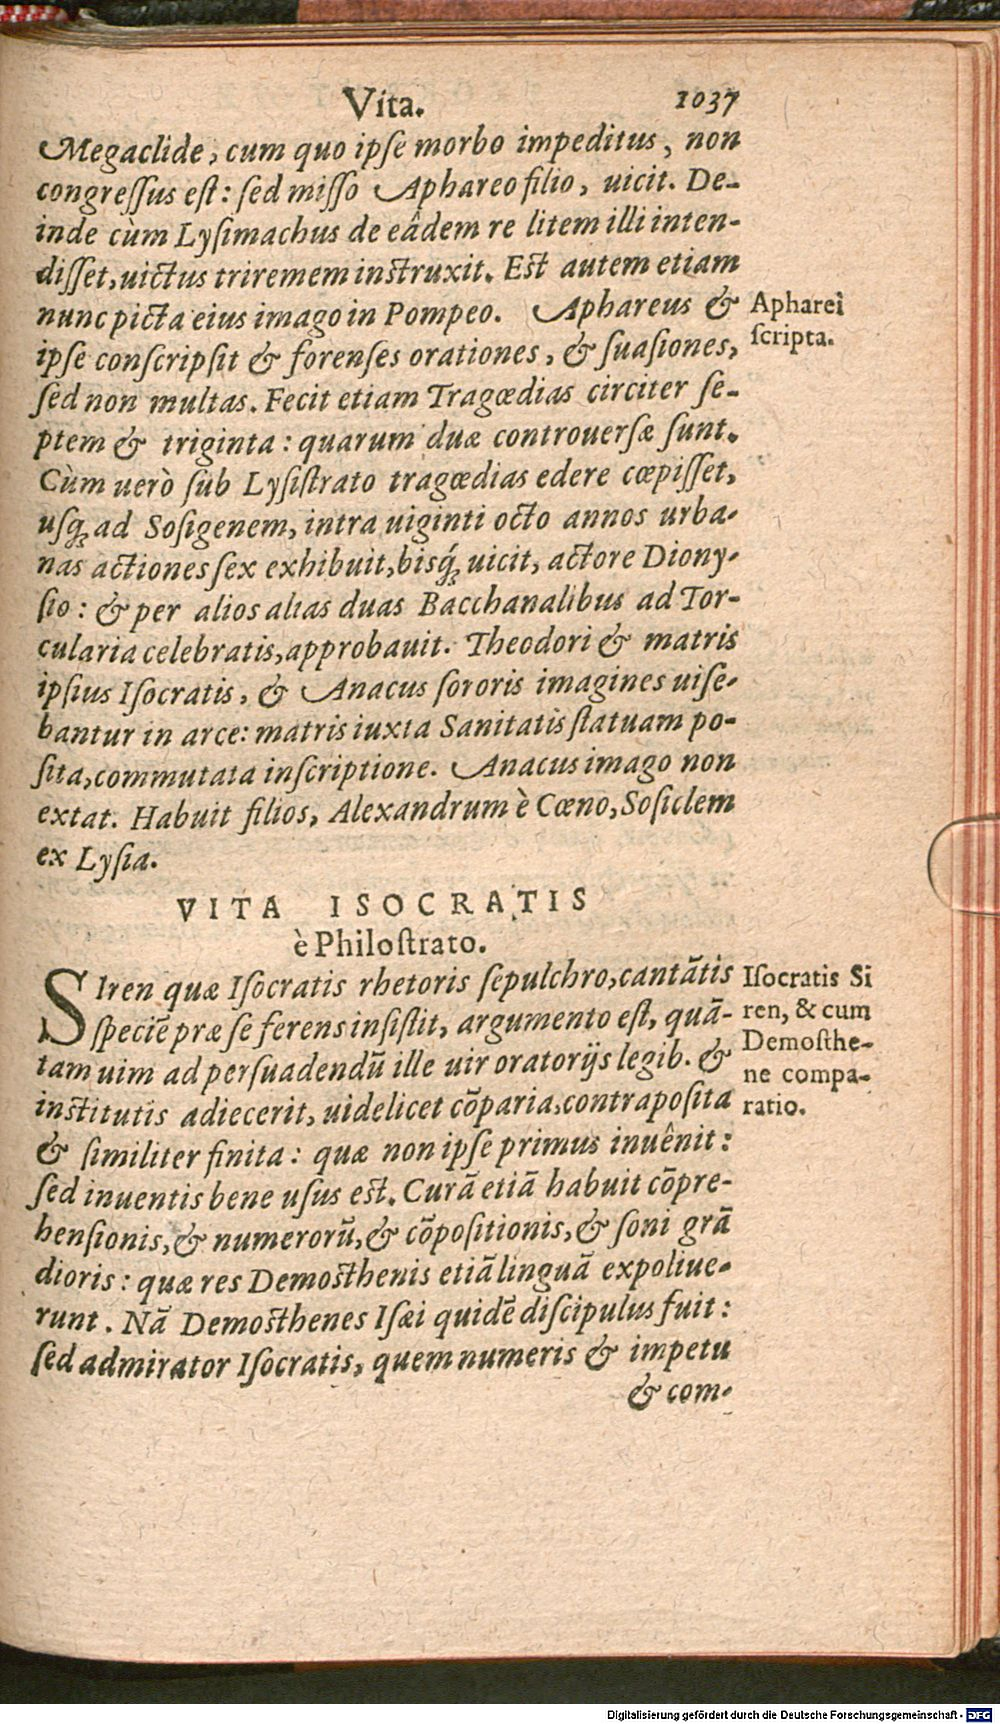 Vita. 1037
Megaclide, cum quo ipſe morbo impeditus, non
congreſſus eſt: ſed miſſo Aphareo filio, uicit. De-
inde cùm Lyſimachus de eâdem re litem illi inten-
diſſet, uictus triremem inſtruxit. Eſt autem etiam
nunc picta eius imago in Pompeo. Aphareus &
ipſe conſcripſit & forenſes orationes, & ſuaſiones,
ſed non multas. Fecit etiam Tragœdias circiter ſe-
ptem & triginta: quarum duæ controuerſæ ſunt.
Cùm uerò ſub Lyſiſtrato tragœdias edere cœpiſſet,
uſq́; ad Soſigenem, intra uiginti octo annos urba-
nas actiones ſex exhibuit, bisq́; uicit, actore Diony-
ſio: & per alios alias duas Bacchanalibus ad Tor-
cularia celebratis, approbauit. Theodori & matris
ipſius Iſocratis, & Anacus ſororis imagines uiſe-
bantur in arce: matris iuxta Sanitatis ſtatuam po-
ſita, commutata inſcriptione. Anacus imago non
extat. Habuit filios, Alexandrum è Cœno, Soſiclem
ex Lyſia.
Apharei
ſcripta.
VITA ISOCRATIS
è Philoſtrato.
SIren quæ Iſocratis rhetoris ſepulchro, cantãtis
ſpeciẽ præ ſe ferens inſiſtit, argumento eſt, quã-
tam uim ad perſuadendũ ille uir oratorijs legib. &
inſtitutis adiecerit, uidelicet cõparia, contrapoſita
& ſimiliter finita: quæ non ipſe primus inuênit:
ſed inuentis bene uſus eſt. Curã etiã habuit cõpre-
henſionis, & numerorũ, & cõpoſitionis, & ſoni grã
dioris: quæ res Demoſthenis etiã linguã expoliue-
runt. Nã Demoſthenes Iſæi quidẽ diſcipulus fuit:
ſed admirator Iſocratis, quem numeris & impetu
& com-
Iſocratis Si
ren, & cum
Demoſthe-
ne compa-
ratio.
Digitalisierung gefördert durch die Deutsche Forschungsgemeinschaft - DFG